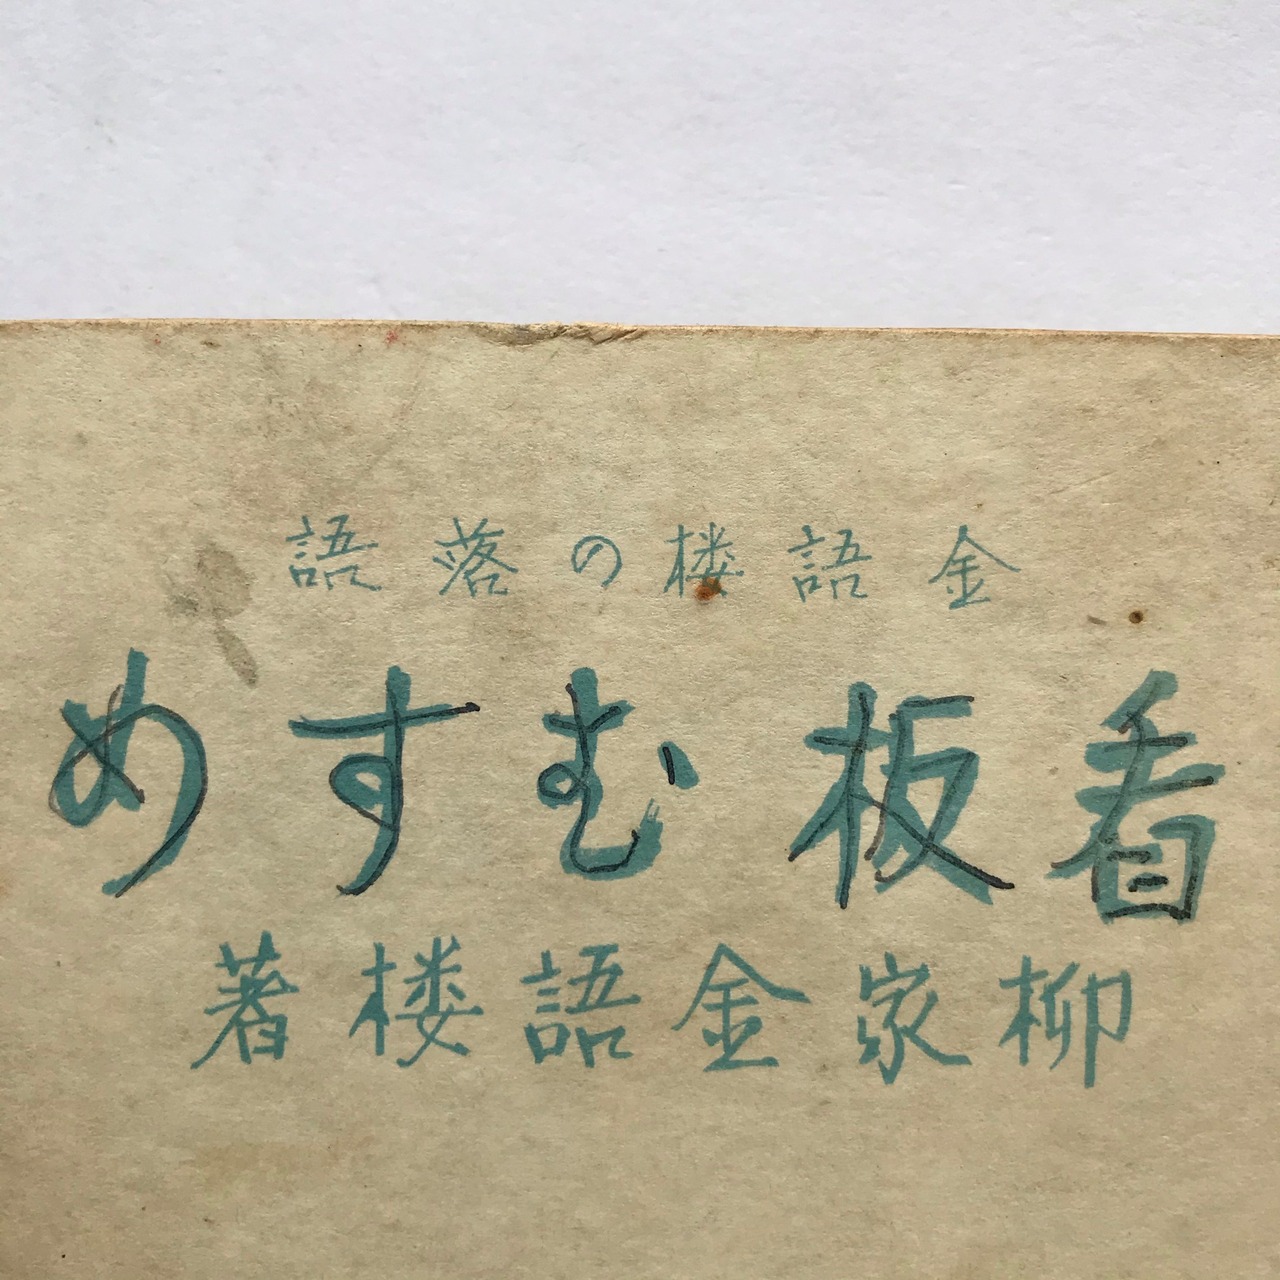 金語楼の落語
看板むすめ
柳家金語楼著